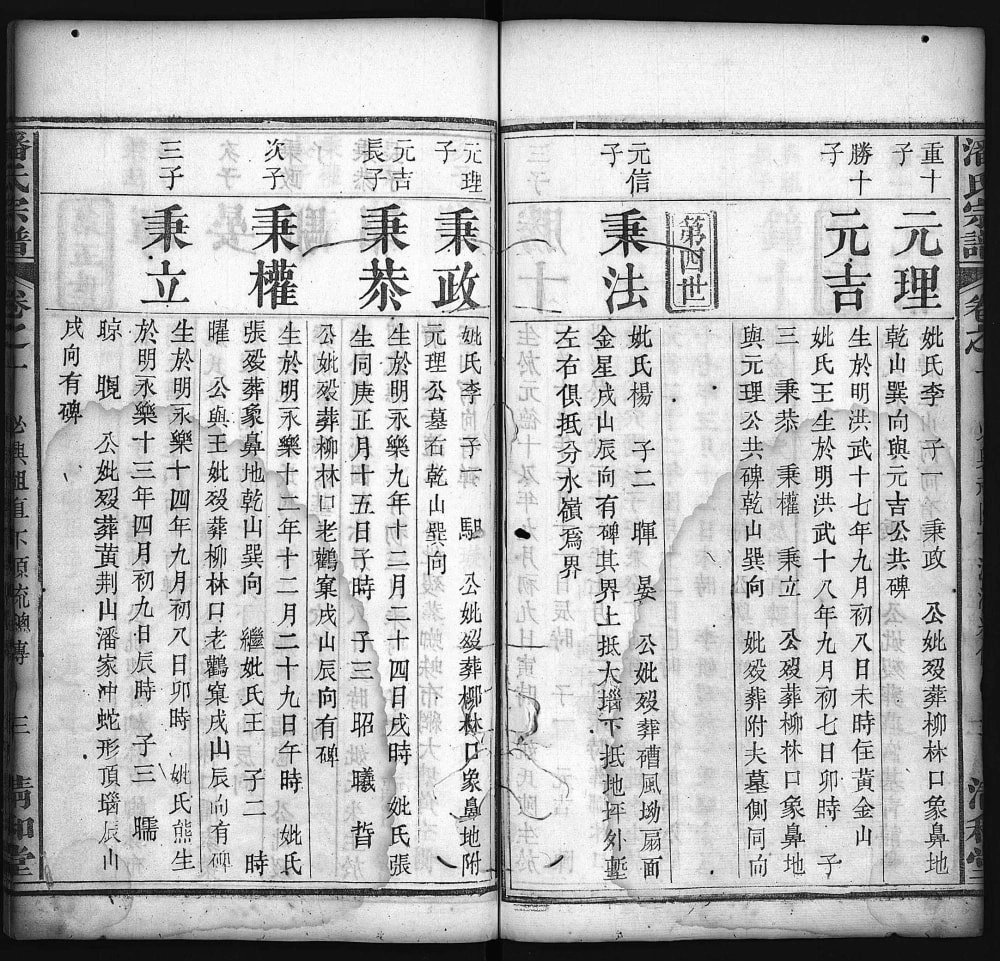 潘氏宗譜
重十子
元理
妣氏李 子一 秉政 公妣歿葬柳林口象鼻地
乾山巽向與元吉公共碑
勝十子
元吉
生於明洪武十七年九月初八日未時任黃金山
妣氏王生於明洪武十八年九月初七日卯時 子
三 秉恭 秉權 秉立 公歿葬柳林口象鼻地
與元理公共碑乾山巽向 妣歿葬附夫墓側同向
第四世
元信子
秉法
妣氏楊 子二 暉 晏 公妣歿葬禮風坳扇面
金星戌山辰向有碑其界上抵大墦下抵地坪外塹
左右俱抵分水嶺爲界
元理子
秉政
妣氏李 子一 馹 公妣歿葬柳林口象鼻地附
元理公墓右乾山巽向
元吉長子
秉恭
生於明永樂九年十二月二十四日戌時 妣氏張
生同庚正月十五日子時 子三 昭 曦 晳
公妣歿葬柳林口老鸛窠戌山辰向有碑
次子
秉權
生於明永樂十二年十二月二十九日午時 妣氏
張歿葬象鼻地乾山巽向 繼妣氏王 子二 時
曜 公與王妣歿葬柳林口老鸛窠戌山辰向有碑
三子
秉立
生於明永樂十四年九月初八日卯時 妣氏熊生
於明永樂十三年四月初九日辰時 子三 曘
晾 晛 公妣歿葬黃荆山潘家冲蛇形頂墦辰山
戌向有碑
潘氏宗譜
卷之一
三
清和堂